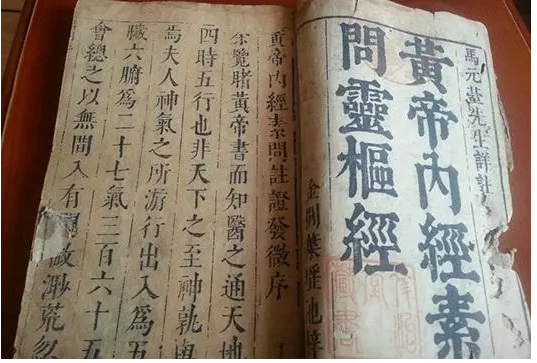 馬元臺先生詳註
黃帝內經素
問靈樞經
金閶葉瑤池梓
黃帝內經素問註證發微序
余覽睹黃帝書而知醫之通天地
四時五行也非天下之至神孰與
焉夫人神氣之所游行出入為五
臟六腑為二十七氣三百六十五
會總之以無間入有間微渺荒忽